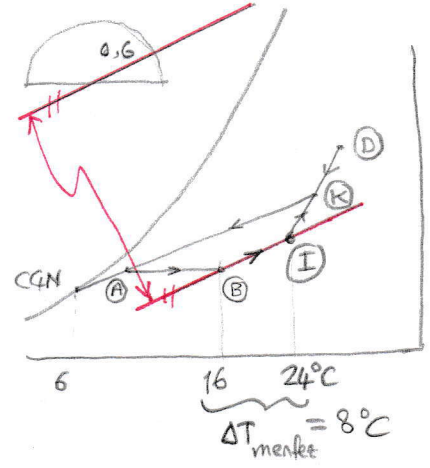 0,6
D
K
I
ÇGN
A
B
6 16 24°C
ΔT menfez = 8°C